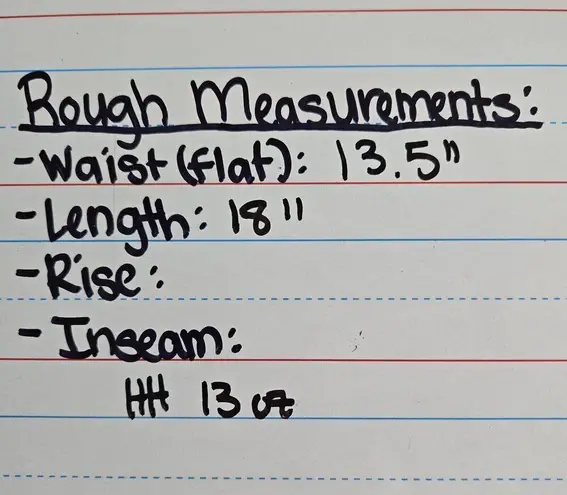 Rough Measurements:
-Waist (flat): 13.5"
-Length: 18"
-Rise:
-Inseam:
13 oz